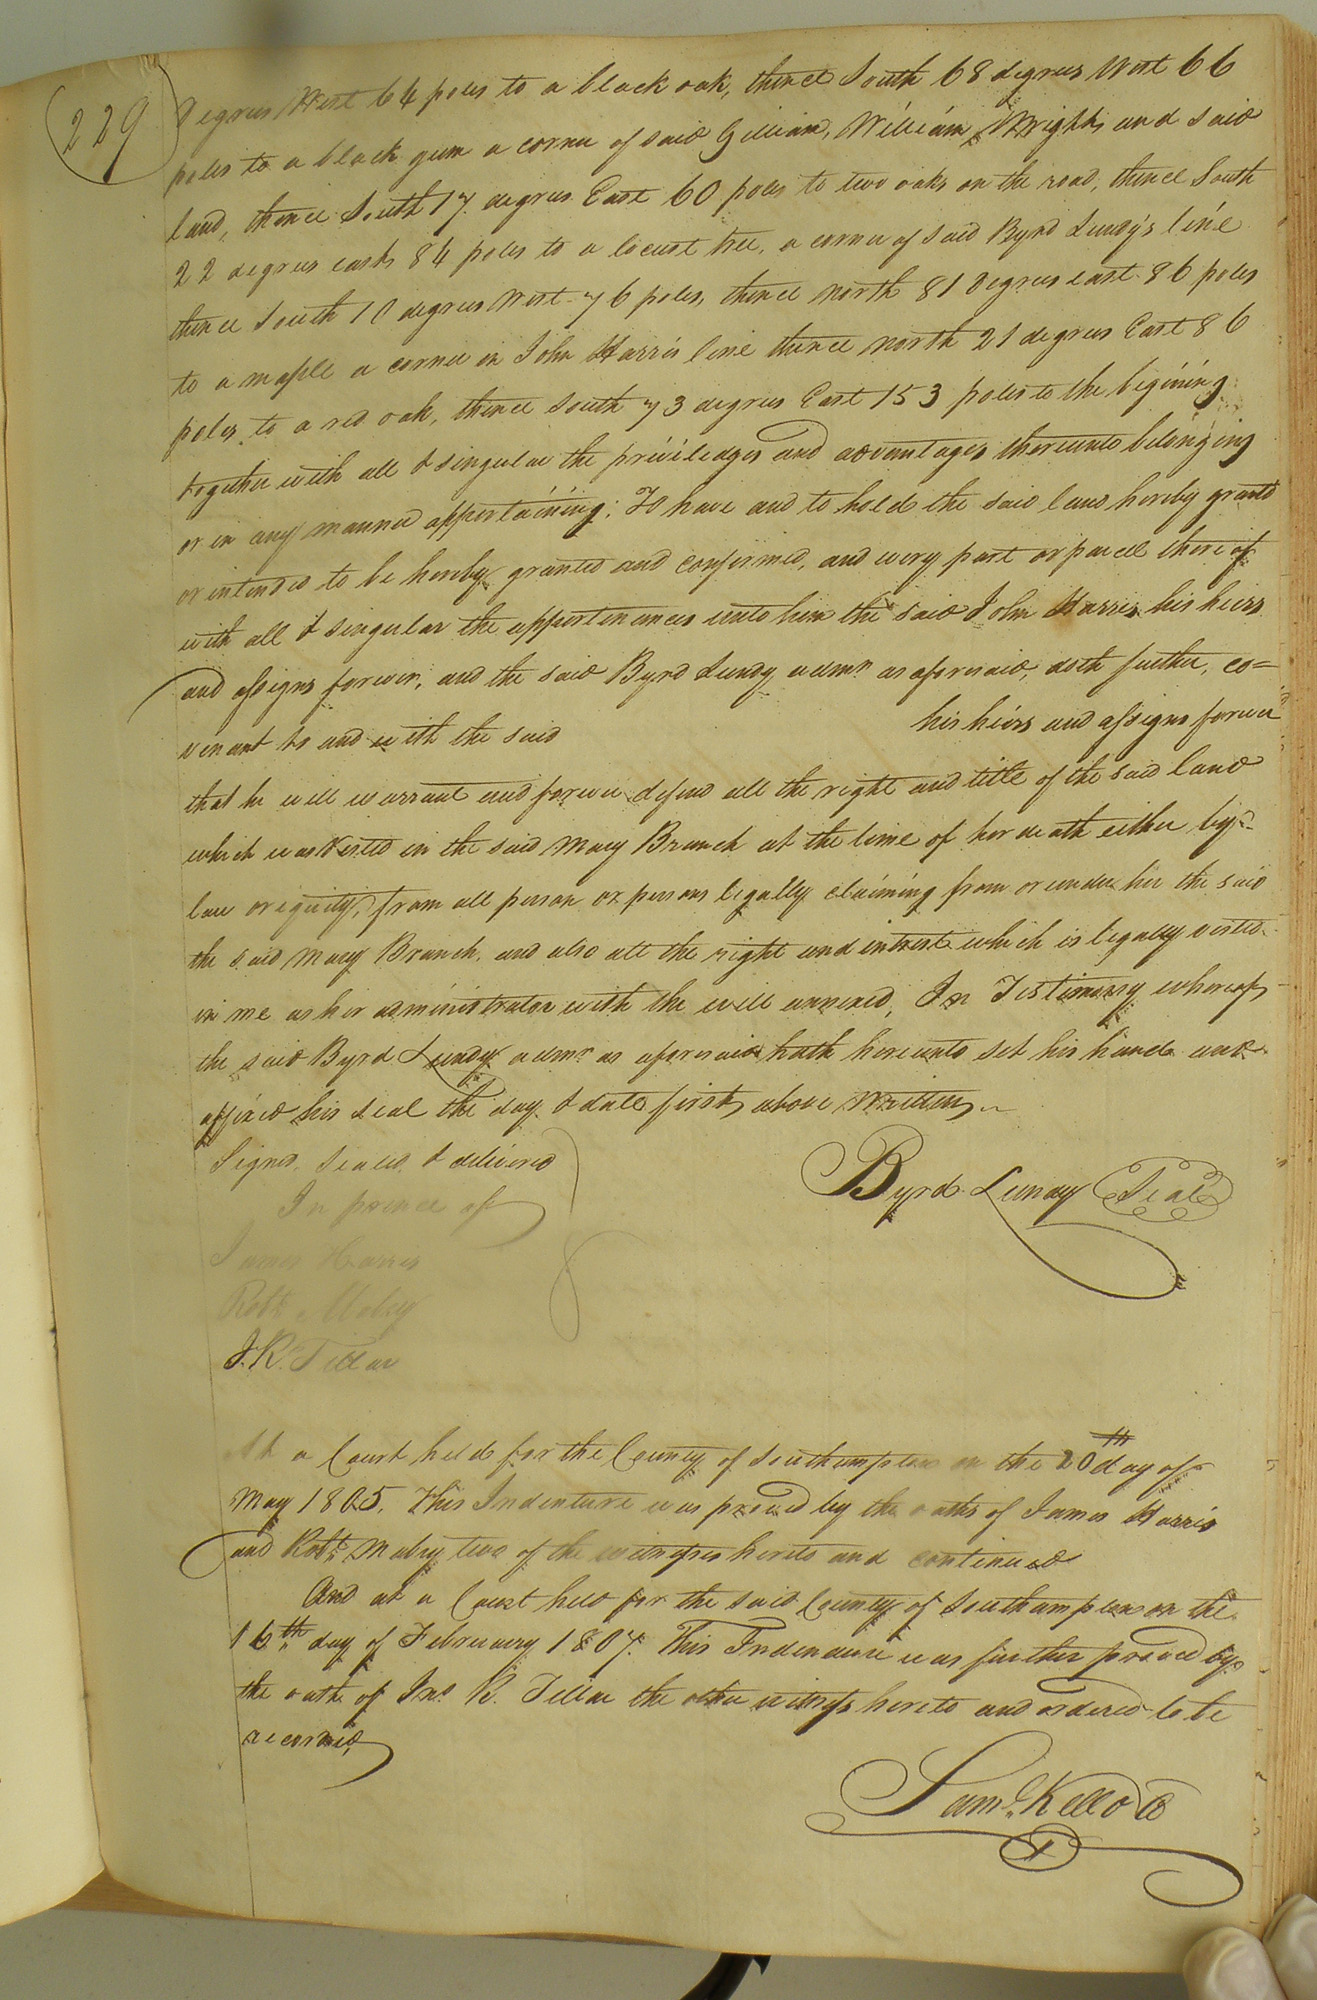 229
degrees West 64 poles to a black oak, thence South 68 degrees West 66
poles to a black gum a corner of said Gilliam, William Wright, and said
land, thence South 17 degrees East 60 poles to two oaks on the road, thence South
22 degrees east 84 poles to a locust tree, a corner of said Byrd Lundy's line
thence South 10 degrees West 76 poles, thence north 81 degrees east 86 poles
to a maple a corner in John Harris line thence north 21 degrees East 86
poles to a red oak, thence South 73 degrees East 153 poles to the begining
together with all & singular the priviledges and advantages thereunto belonging
or in any manner appertaining; To have and to hold the said land hereby granted
or intended to be hereby granted and confirmed, and every part or parcel there of
with all & singular the appurtinances unto him the said John Harris, his heirs
and assigns forever, and the said Byrd Lundy admr. as aforesaid, doth further, co=
venant to and with the said his heirs and assigns forever
that he will warrant and forever defend all the right and title of the said land
which was vested in the said Mary Branch at the time of her death either by
law or equity, from all person or persons legally claiming from or under her the said
the said Mary Branch, and also all the right and intrest which is legally vested
in me as her administrator with the will annexed, In Testimony whereof
the said Byrd Lundy admr. as aforesaid hath hereunto set his hand and
affixed his seal the day & date first above Written
Signed, Sealed & delivered
In presence of
Byrd Lundy Seal
James Harris
Robt. Mabry
J. R. Tillar
At a Court held for the County of Southampton on the 20th day of
May 1805. This Indenture was proved by the oaths of James Harris
and Robt. Mabry two of the witnesses hereto and continued
And at a Court held for the said County of Southampton on the
16th day of February 1807. This Indenture was further proved by
the oath of Jno. R. Tillar the other witness hereto and ordered to be
recorded,
Saml. Kello C